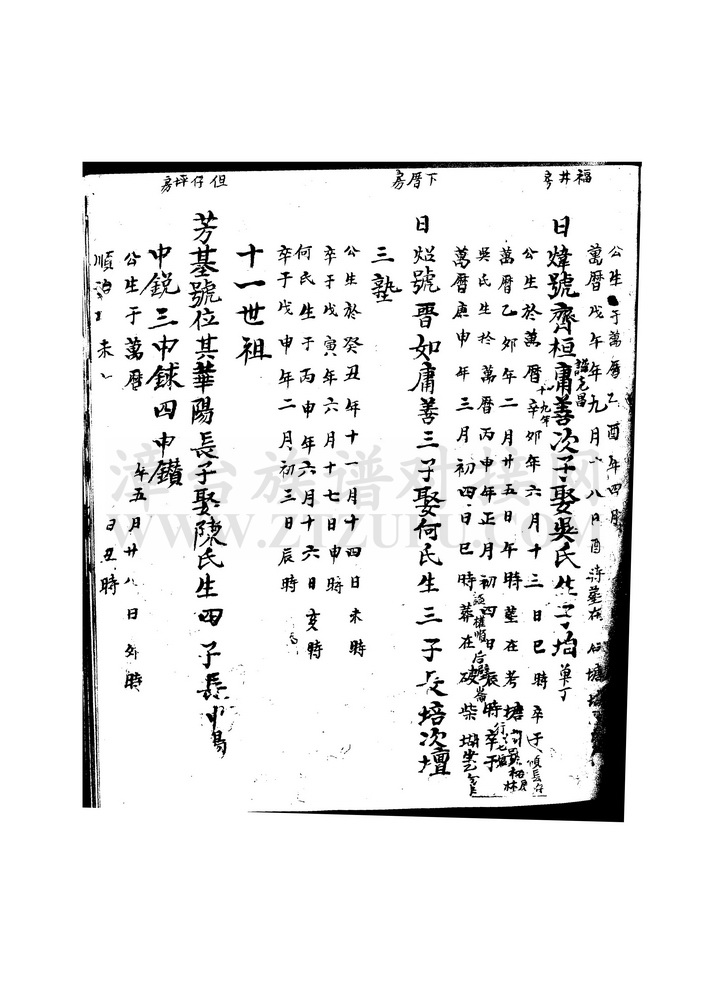 福井房
公生于萬曆乙酉年四月
萬曆戊午年九月八日酉時墓在塘
日煒號齊桓庸善次子娶吳氏生子培單丁
諱元昌
公生於萬曆辛卯年六月十三日巳時卒于順長在
十九年
萬曆乙卯年二月廿五日午時墓在考塘
吳氏生於萬曆丙申年正月初四日辰時卒于
萬曆庚申年三月初四日巳時葬在破柴
下厝房
日炤號晋如庸善三子娶何氏生三子長培次壇
三塾
公生於癸丑年十一月十四日未時
卒于戊寅年六月十七日申時
何氏生于丙申年六月十六日亥時
卒于戊申年二月初三日辰時
十一世祖
但仔坪房
芳基號位其華陽長子娶陳氏生四子長中易
中銳三中銶四中鑽
公生于萬曆年五月廿八日卯時
順治未日丑時
漳台族谱对接网
WWW.ZTZUPU.COM